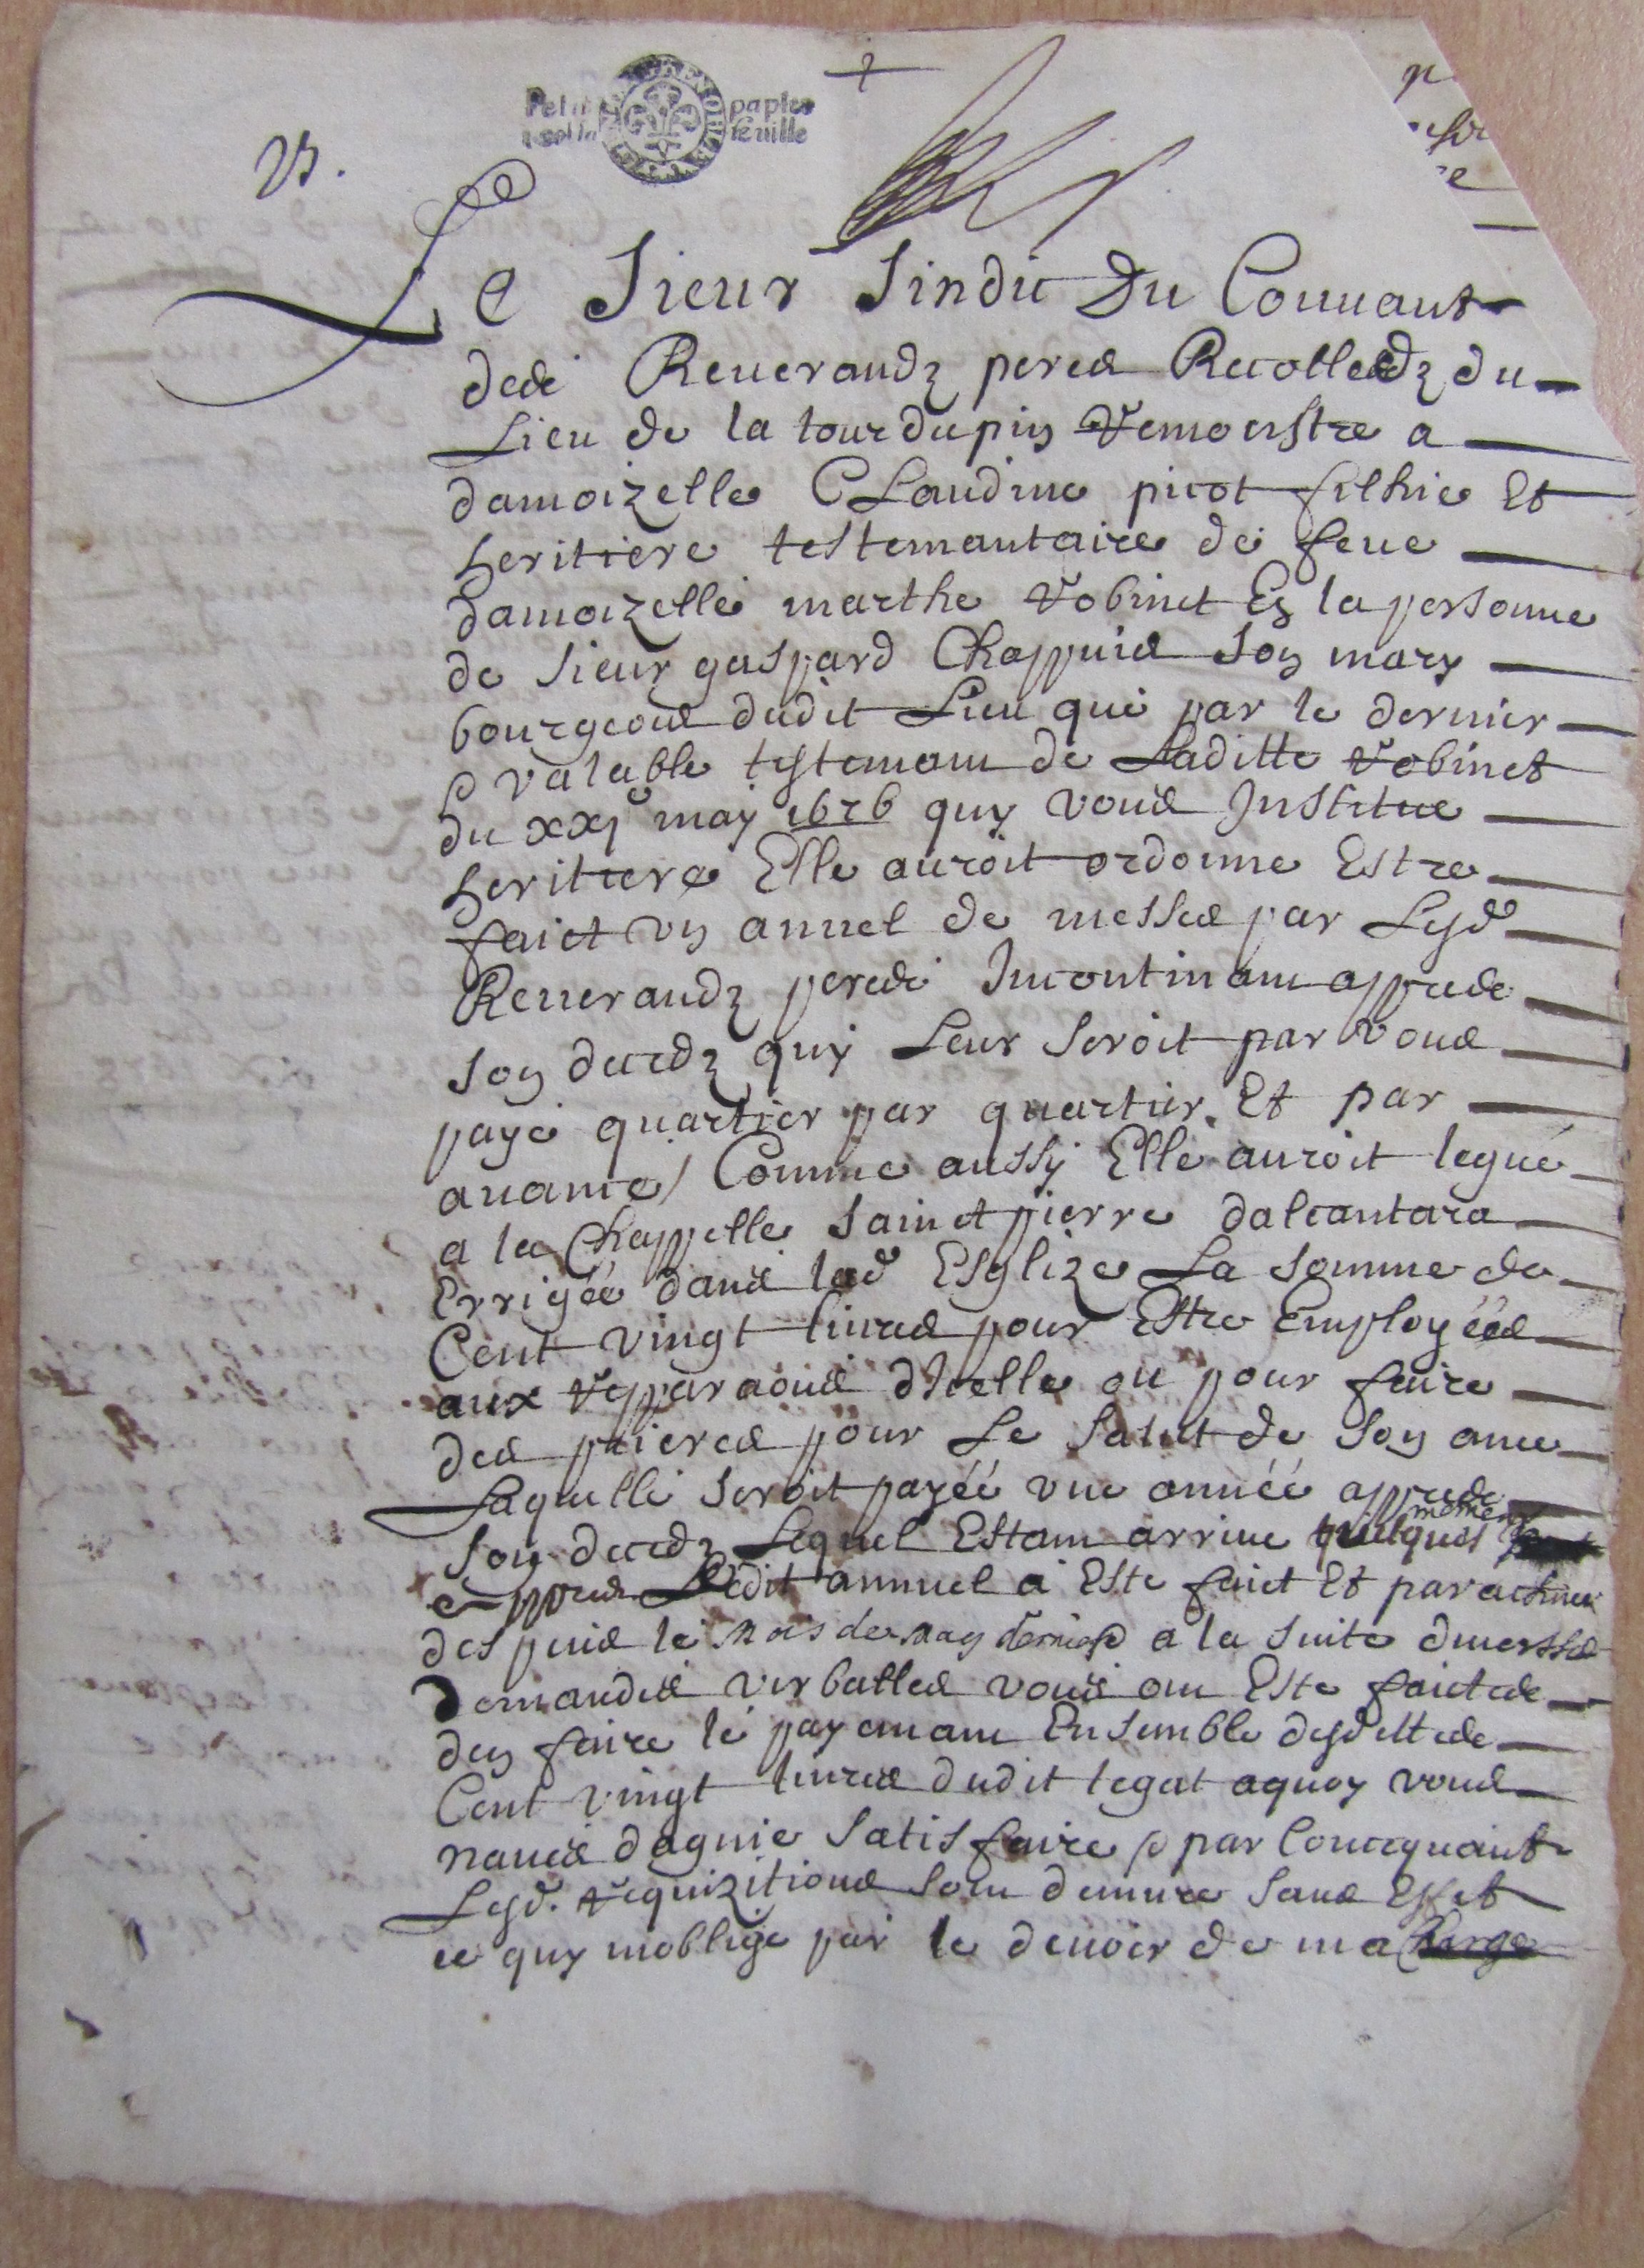 Petit papier
feuille
Le Sieur Sindic Du Couuant
des Reuerandz peres Recolledz du
Lieu de la tourdupin Remonstre a
damoizelle Claudine picot filhie Et
heritiere testemantaire de feue
damoizelle marthe Robinet En la personne
de Sieur gaspard Chappuis Son mary
bourgeois dudit Lieu que par le dernier
& valable testemant de Laditte Robinet
du xxj may 1676 quy vous Institue
heritiere Elle auroit ordonne Estre
faict vn annel de messes par Lesd
Reuerandz peres Incontinant appres
son decedz quy Leur Seroit par vous
paye quartier par quartier Et par
auance / Comme aussy Elle auroit legué
a la Chappelle Sainct pierre dalcantara
Errigéé dans lad Esglize La somme de
Cent vingt liures pour Estre Employéés
aux repparaons dIcelle ou pour faire
des prieres pour Le Salut de Son ame
Laquelle Seroit payéé vne annéé appres
Son decedz Lequel Estant arriue quelques
appres Ledit annuel a Este faict Et paracheue
despuis le Mois de May dernier & a la Suite diuersses
Demandes verballes vous ont Este faictes
den faire le payemant Ensemble desdittes
Cent vingt liures dudit legat aquoy vous
naues dagnie Satisfaire & par Conceqaunt
Lesd. requizitions Sont demure Sans Effet
ce quy moblige par le deuoir de ma Charge